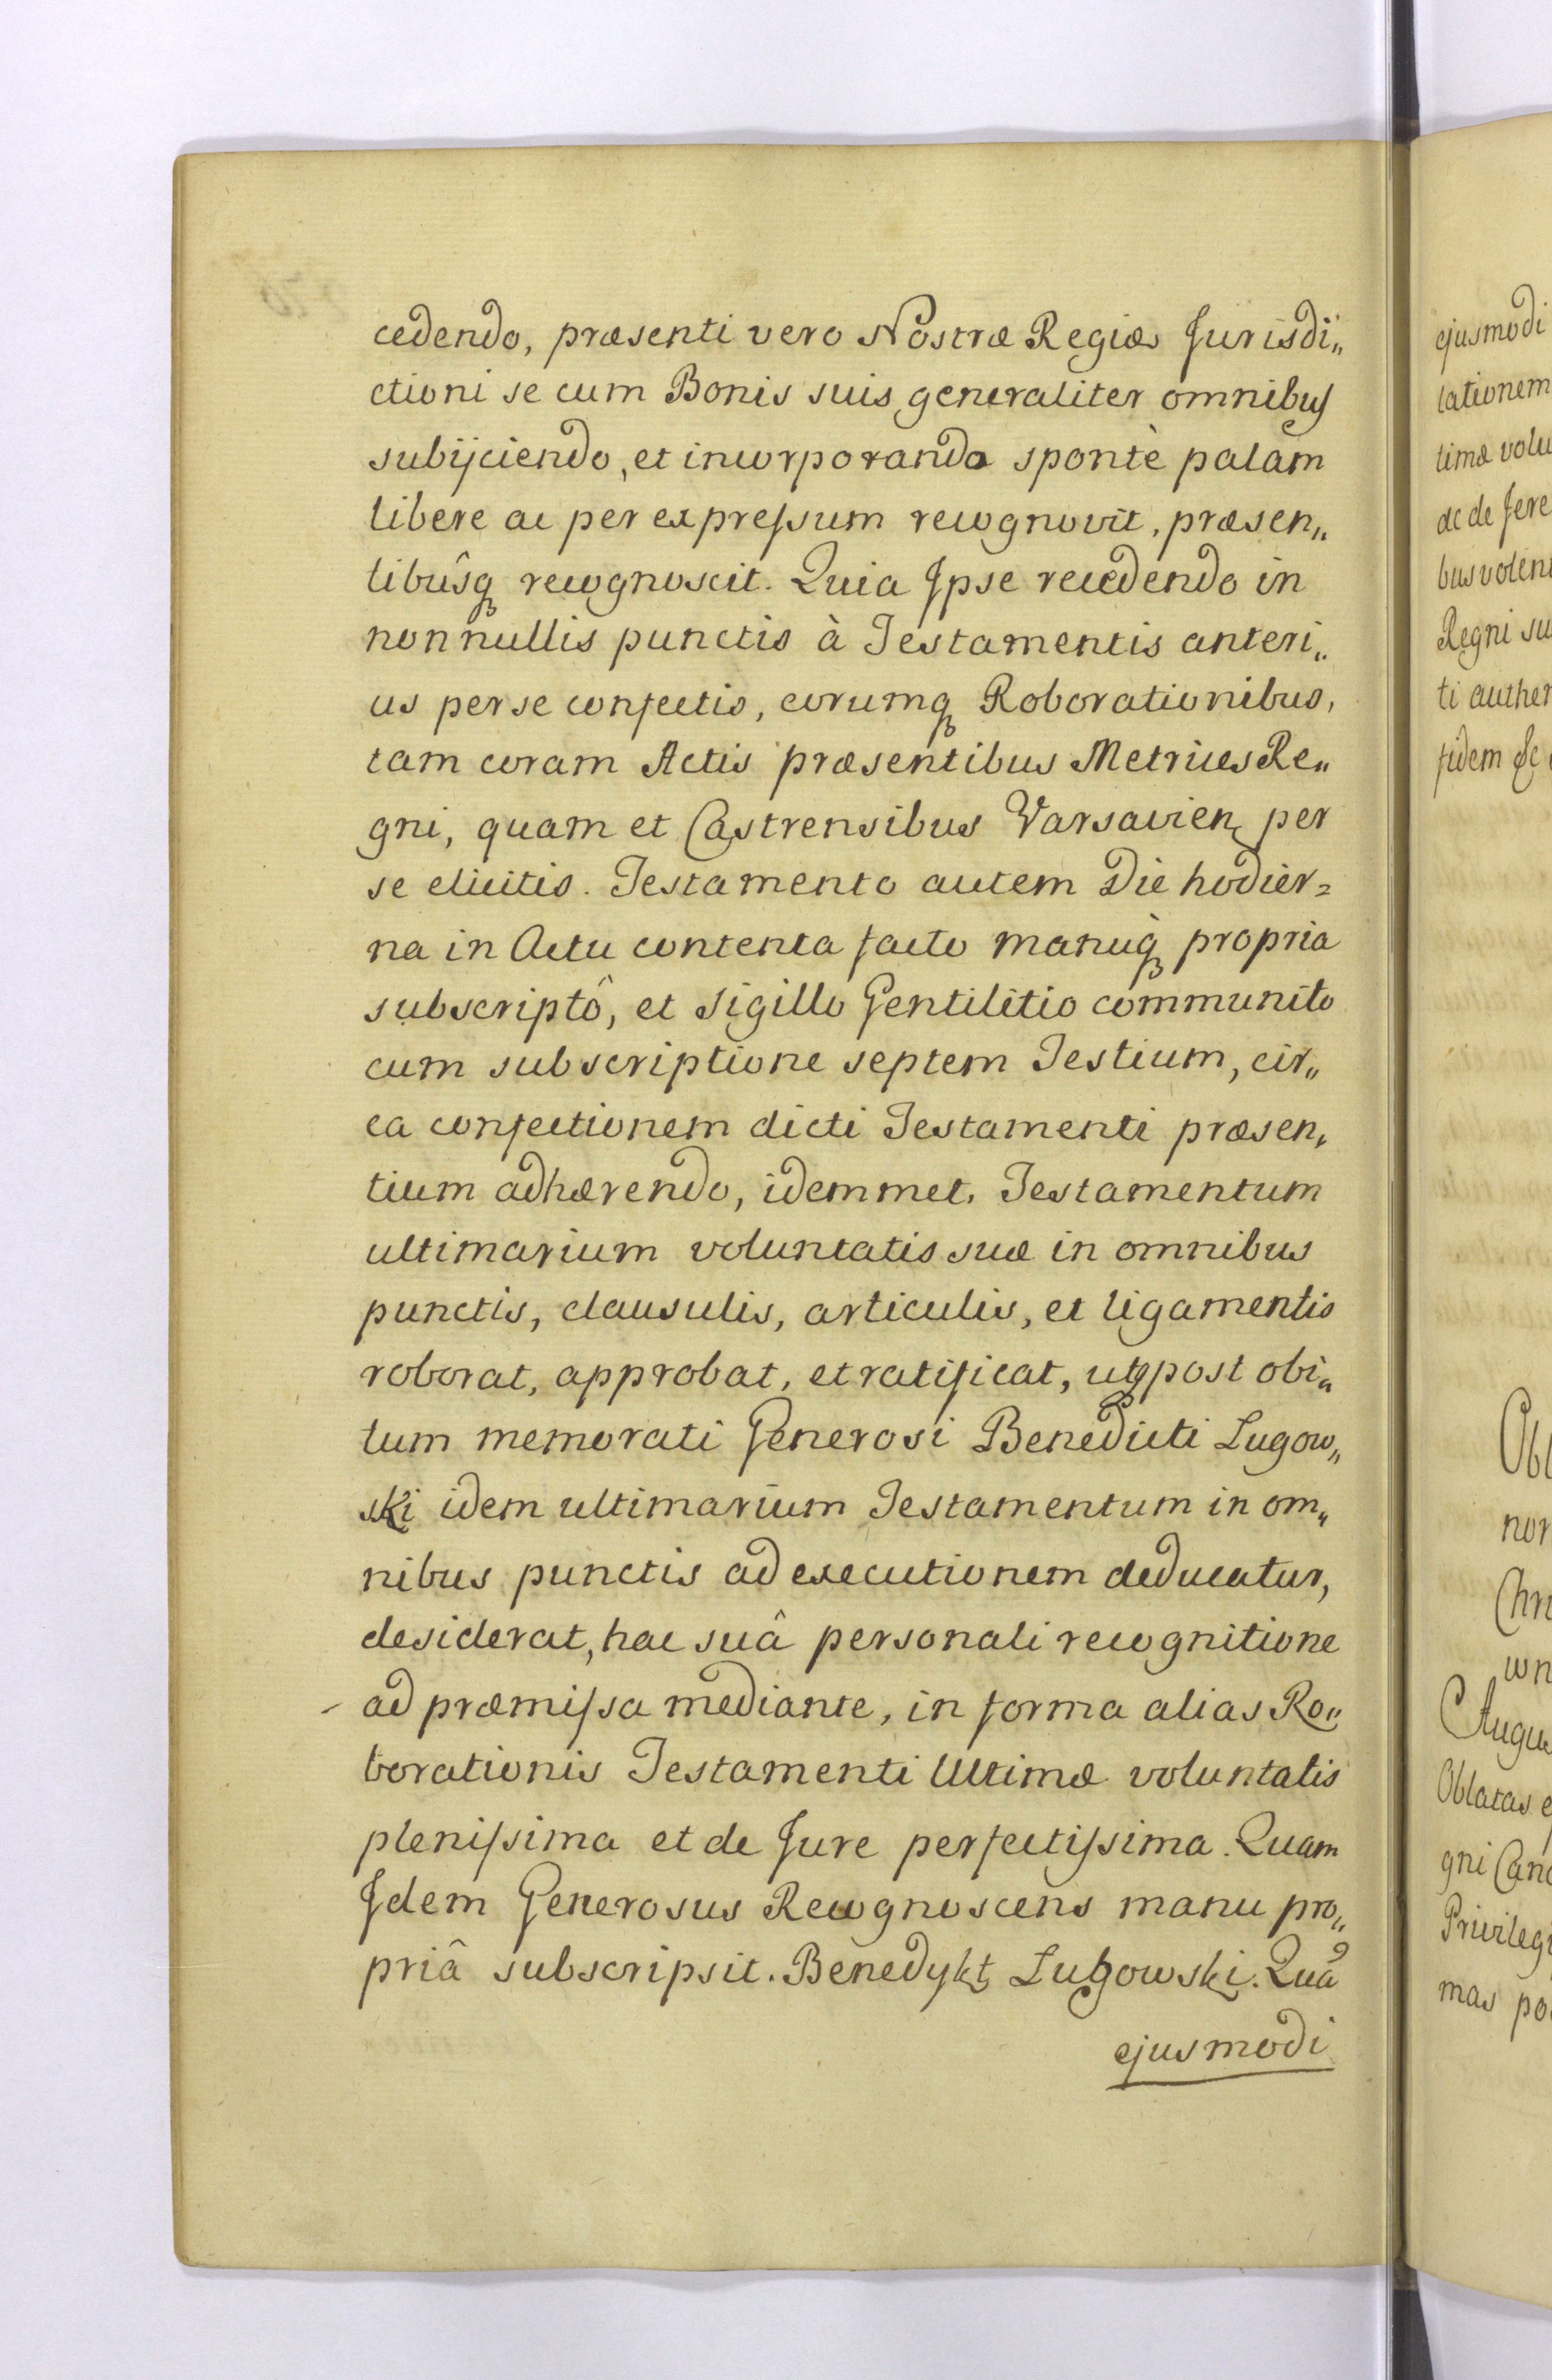 cedendo, præsenti vero Nostræ Regiæ Jurisdi„
ctioni se cum Bonis suis generaliter omnibus
subijciendo, et incorporando spontè palam
libere ac per expressum recognovit, præsen„
tibûsq recognoscit. Quia Ipse recedendo in
nonnullis punctis à Testamentis anteri„
us per se confectis, eorumq Roborationibus,
tam coram Actis præsentibus Metrices Re„
gni, quam et Castrensibus Varsavien per
se elicitis. Testamento autem Die hodier=
na in Actu contenta facto manuq̀ propria
subscriptô, et Sigillo Gentilitio communito
cum subscriptione septem Testium, cir„
ca confectionem dicti Testamenti præsen„
tium adhærendo, idemmet. Testamentum
ultimarium voluntatis suæ in omnibus
punctis, clausulis, articulis, et ligamentis
roborat, approbat, et ratificat, utq post obi„
tum memorati Generosi Benedicti Lugow„
ski idem ultimarium Testamentum in om„
nibus punctis ad executionem deducatur,
desiderat, hac suâ personali recognitione
ad præmissa mediante, in forma alias Ro„
borationis Testamenti Ultimæ voluntatis
plenissima et de Jure perfectissima. Quam
Idem Generosus Recognoscens manu pro„
priâ subscripsit. Benedykt Lugowski. Quã
ejusmodi
ejusmodi
lationem
timæ volu
ac de Jere
bus volent
Regni su
ti authen
fidem &c
Obl
nor
Chri
con
Augu
Oblatas e
gni Canc
Privilegi
mas po